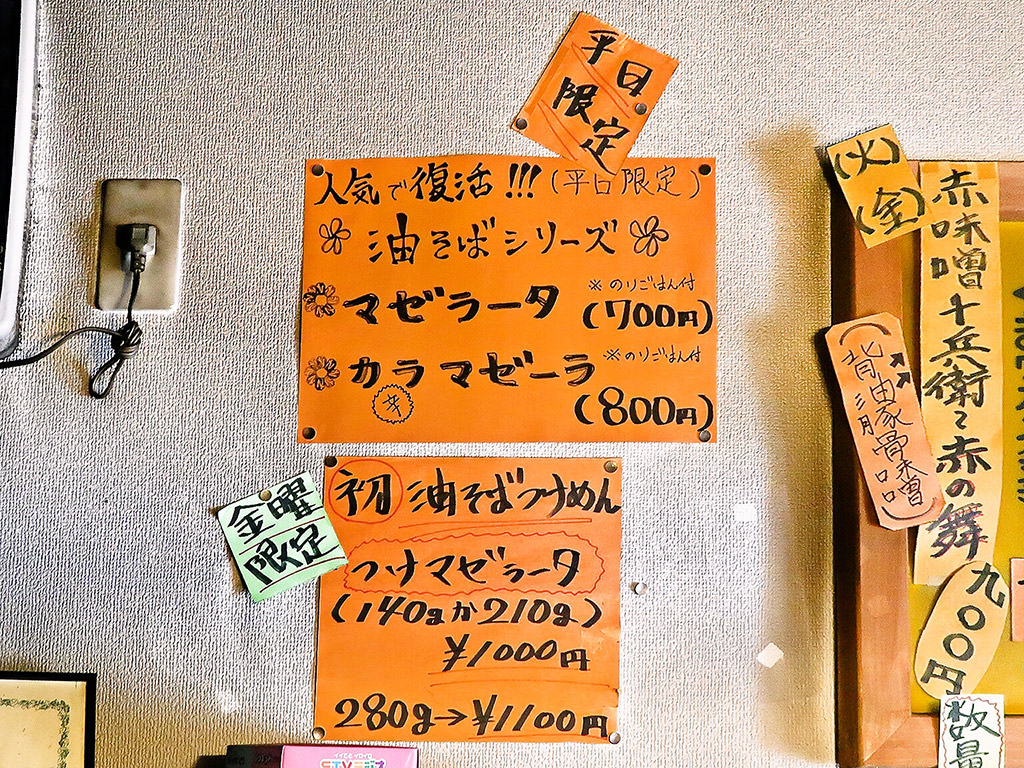 平日
限定
人気で復活!!!(平日限定)
油そばシリーズ
マゼラータ
※のりごはん付
(700円)
カラマゼーラ
辛
※のりごはん付
(800円)
金曜
限定
初 油そばつけめん
つけマゼラータ
(140gか210g)
¥1000円
280g→¥1100円
(火)
(金)
赤味噌十兵衛〜赤の舞
(背油豚骨味噌)
九〇〇円
数量